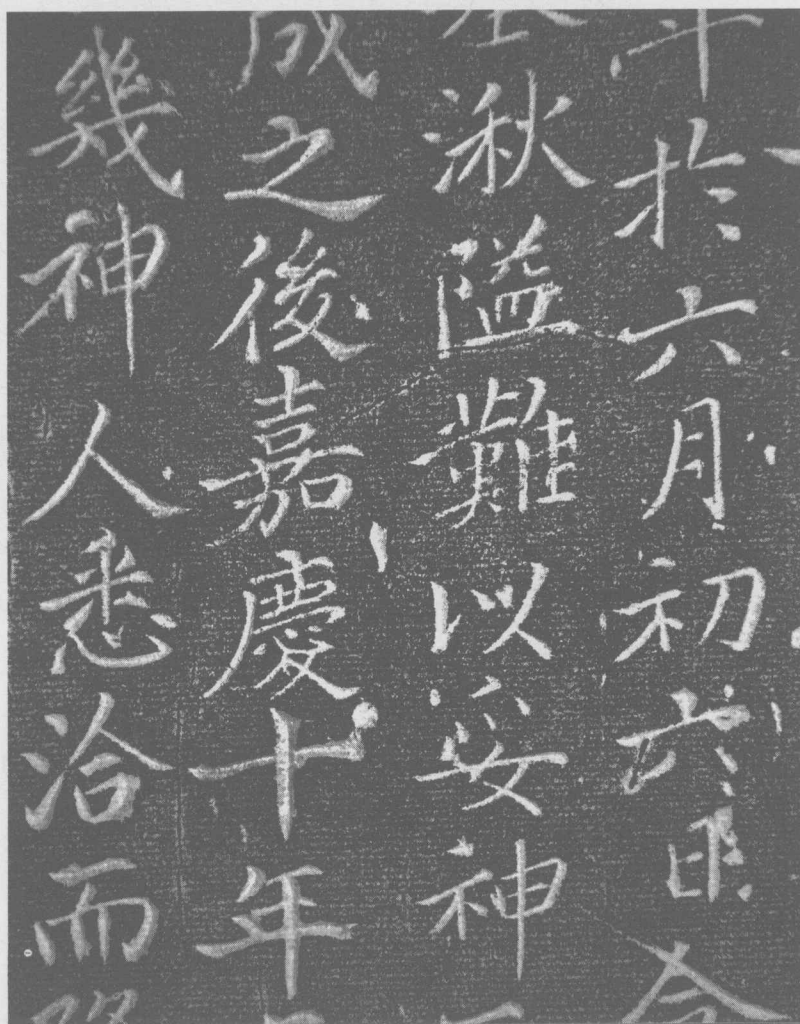 於六月初六日
湫隘難以妥神
之後嘉慶十年
幾神人悉洽而